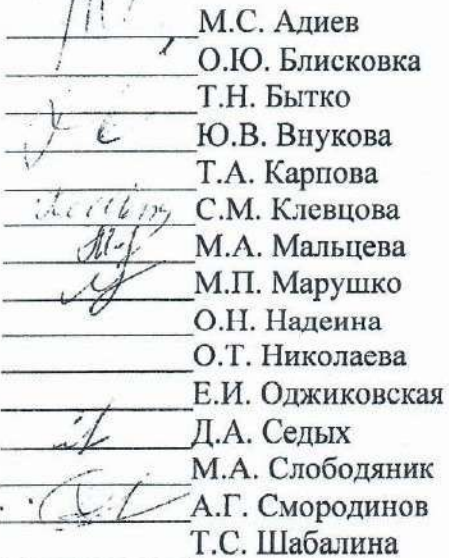 М.С. Адиев
О.Ю. Блисковка
Т.Н. Бытко
Ю.В. Внукова
Т.А. Карпова
С.М. Клевцова
М.А. Мальцева
М.П. Марушко
О.Н. Надеина
О.Т. Николаева
Е.И. Оджиковская
Д.А. Седых
М.А. Слободяник
А.Г. Смородинов
Т.С. Шабалина